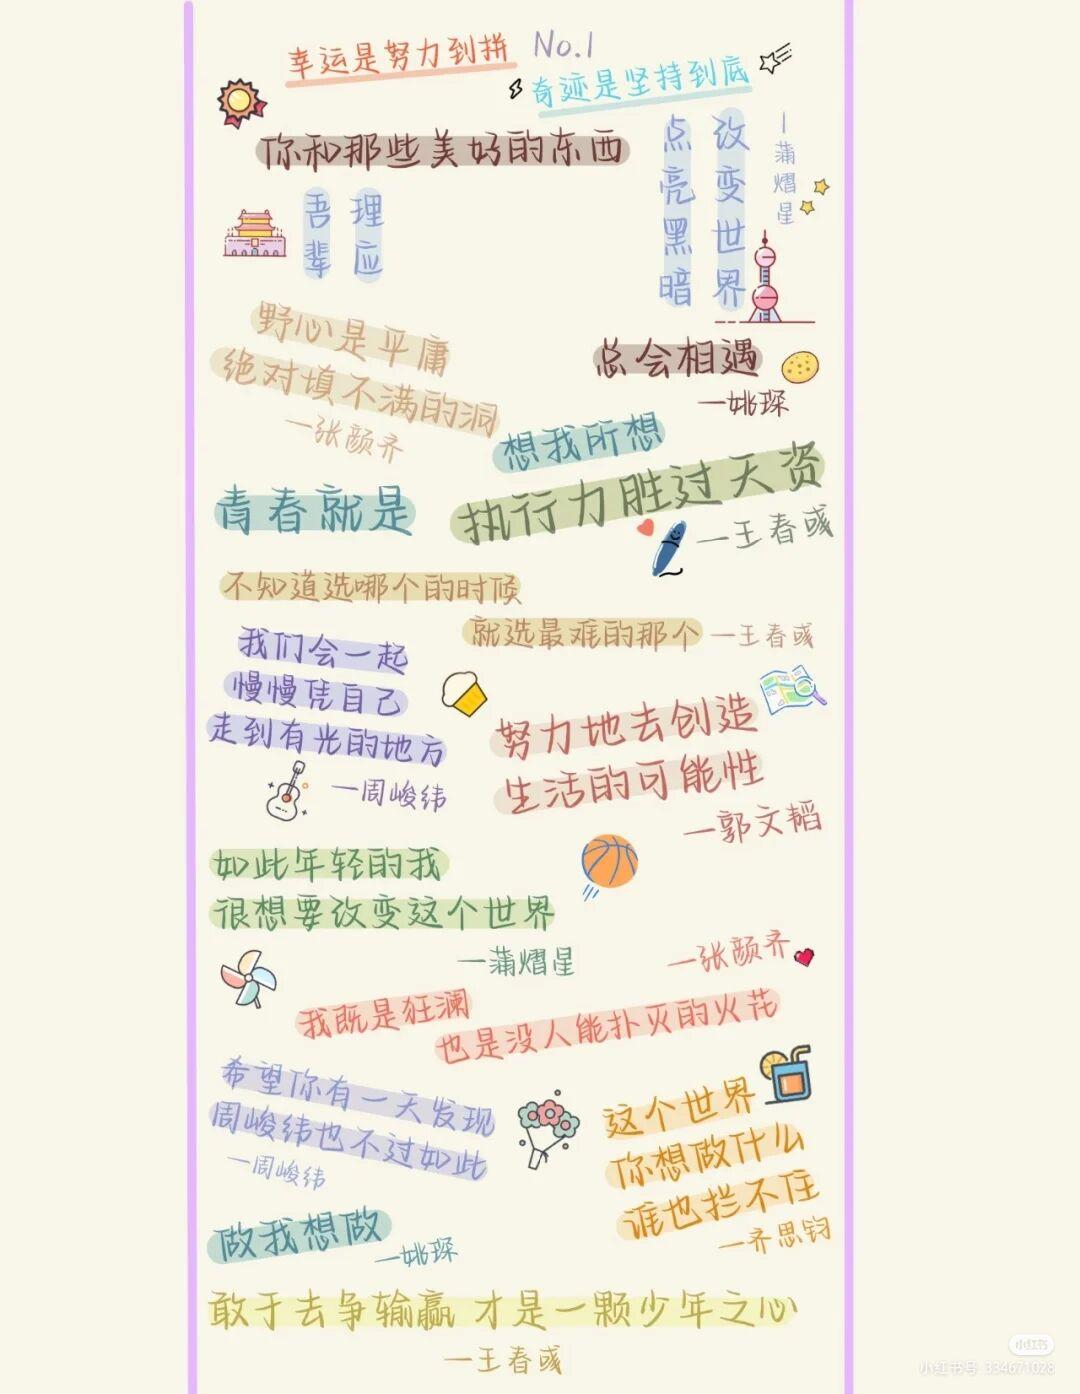 幸运是努力到拼
No.1
奇迹是坚持到底
你和那些美好的东西
总会相遇
—姚琛
吾辈
理应
点亮黑暗
改变世界
—蒲熠星
野心是平庸
绝对填不满的洞
—张颜齐
青春就是
想我所想
做我想做
—姚琛
执行力胜过天资
—王春彧
不知道选哪个的时候
就选最难的那个
—王春彧
我们会一起
慢慢凭自己
走到有光的地方
—周峻纬
努力地去创造
生活的可能性
—郭文韬
如此年轻的我
很想要改变这个世界
—蒲熠星
—张颜齐
我既是狂澜
也是没人能扑灭的火花
希望你有一天发现
周峻纬也不过如此
—周峻纬
这个世界
你想做什么
谁也拦不住
—齐思钧
敢于去争输赢 才是一颗少年之心
—王春彧
小红书
小红书号 334671028